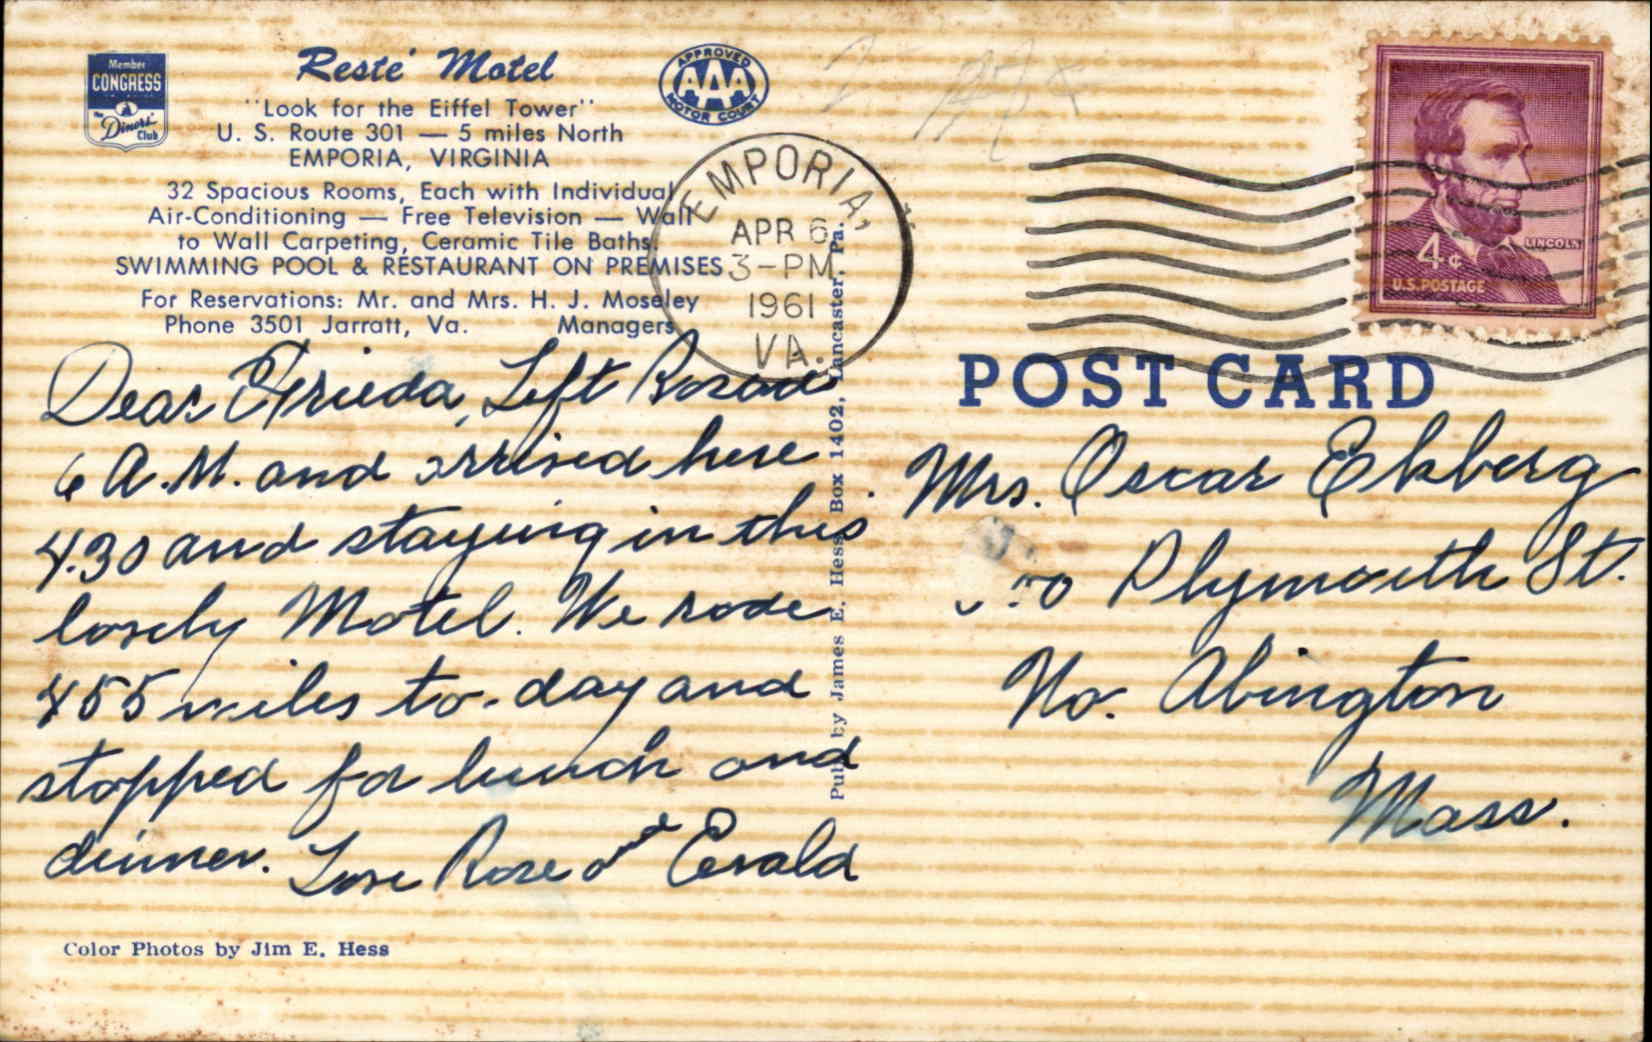 Member
CONGRESS
The
Diners'
Club
Resté Motel
"Look for the Eiffel Tower"
U. S. Route 301 — 5 miles North
EMPORIA, VIRGINIA
32 Spacious Rooms, Each with Individual
Air-Conditioning — Free Television — Wall
to Wall Carpeting, Ceramic Tile Baths.
SWIMMING POOL & RESTAURANT ON PREMISES
For Reservations: Mr. and Mrs. H. J. Moseley
Phone 3501 Jarratt, Va. Managers
APPROVED
AAA
MOTOR COURT
EMPORIA,
APR 6
3-PM
1961
VA.
LINCOLN
4¢
U.S. POSTAGE
Dear Frieda, Left
6 A.M. and arrived here
4.30 and staying in this
lovely Motel. We rode
455 miles to-day and
stopped for lunch and
dinner. Love Rose and Evald
Color Photos by Jim E. Hess
Pub. by James E. Hess, Box 1402, Lancaster, Pa.
POST CARD
Mrs. Oscar Ekberg
Plymouth St.
No. Abington
Mass.